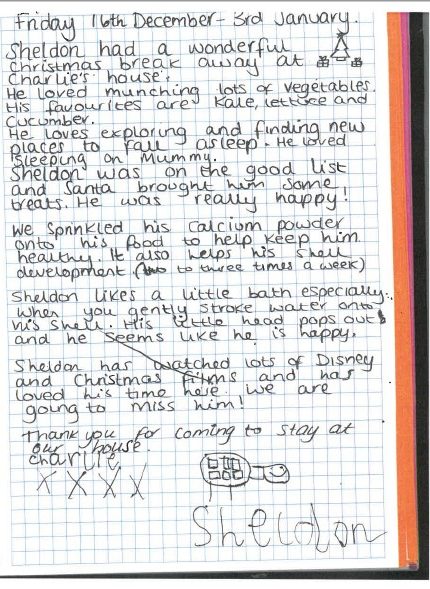 Friday 16th December - 3rd January.
Sheldon had a wonderful
Christmas break away at
Charlie's house.
He loved munching lots of vegetables.
His favourites are Kale, lettuce and
Cucumber.
He loves exploring and finding new
places to fall asleep. He loved
sleeping on Mummy.
Sheldon was on the good list
and Santa brought him some
treats. He was really happy!
We Sprinkled his Calcium powder
onto his food to help keep him
healthy. It also helps his shell
development. (two to three times a week)
Sheldon likes a little bath especially
when you gently stroke water onto
his shell. His little head pops out
and he seems like he is happy.
Sheldon has watched lots of Disney
and Christmas films and has
loved his time here. We are
going to miss him!
Thank you for coming to stay at
our house.
Charlie
X X X X
Sheldon